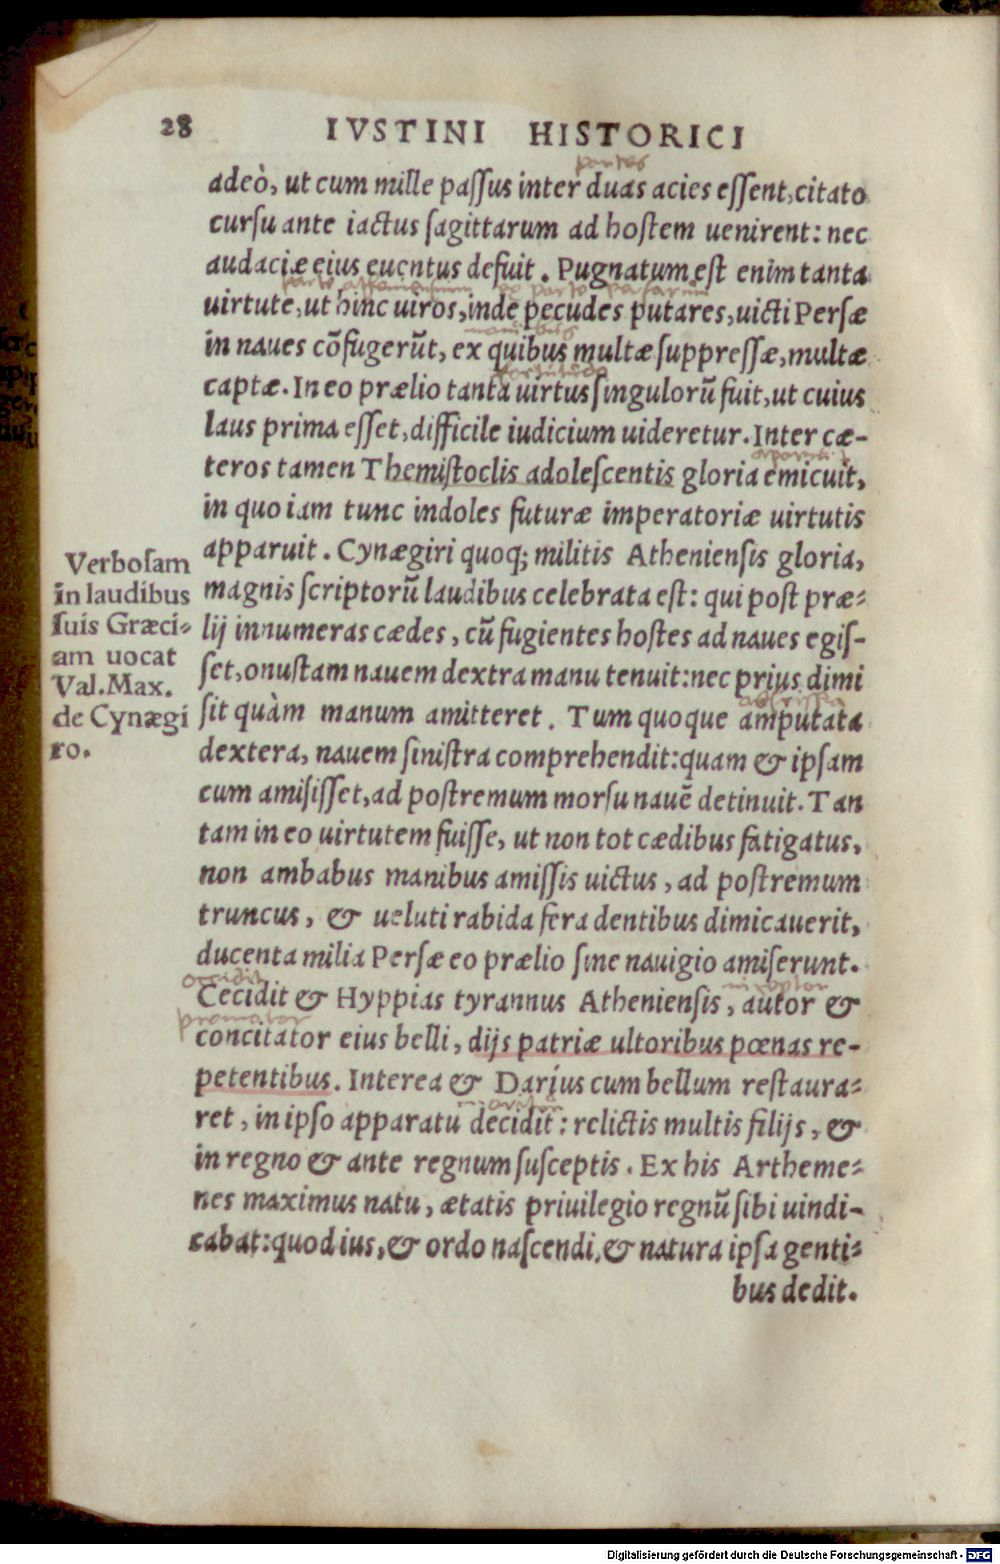 28 IVSTINI HISTORICI
partes
adeò, ut cum mille paſſus inter duas acies eſſent, citato
curſu ante iactus ſagittarum ad hoſtem uenirent: nec
audaciæ eius euentus defuit. Pugnatum eſt enim tanta
parte atheniensium ex parte persarum
uirtute, ut hinc uiros, inde pecudes putares, uicti Perſæ
navibus
in naues cõfugerũt, ex quibus multæ ſuppreſſæ, multæ
fortitudo
captæ. In eo prælio tanta uirtus ſingulorũ fuit, ut cuius
laus prima eſſet, difficile iudicium uideretur. Inter cæ-
apparuit
teros tamen Themiſtoclis adoleſcentis gloria emicuit,
in quo iam tunc indoles futuræ imperatoriæ uirtutis
apparuit. Cynægiri quoq; militis Athenienſis gloria,
magnis ſcriptorũ laudibus celebrata eſt: qui poſt præ-
lij innumeras cædes, cũ fugientes hoſtes ad naues egiſ-
ſet, onuſtam nauem dextra manu tenuit: nec prius dimi
abscissa
ſit quàm manum amitteret. Tum quoque amputata
dextera, nauem ſiniſtra comprehendit: quam & ipſam
cum amiſiſſet, ad poſtremum morſu nauẽ detinuit. Tan
tam in eo uirtutem fuiſſe, ut non tot cædibus fatigatus,
non ambabus manibus amiſſis uictus, ad poſtremum
truncus, & ueluti rabida fera dentibus dimicauerit,
ducenta milia Perſæ eo prælio ſine nauigio amiſerunt.
occidit
Cecidit & Hyppias tyrannus Athenienſis, autor &
promotor
concitator eius belli, dijs patriæ ultoribus pœnas re-
petentibus. Interea & Darius cum bellum reſtaura-
moritur
ret, in ipſo apparatu decidit: relictis multis filijs, &
in regno & ante regnum ſuſceptis. Ex his Artheme-
nes maximus natu, ætatis priuilegio regnũ ſibi uindi-
cabat: quod ius, & ordo naſcendi, & natura ipſa genti-
bus dedit.
Verboſam
in laudibus
ſuis Græci-
am uocat
Val. Max.
de Cynægi
ro.
Digitalisierung gefördert durch die Deutsche Forschungsgemeinschaft - DFG